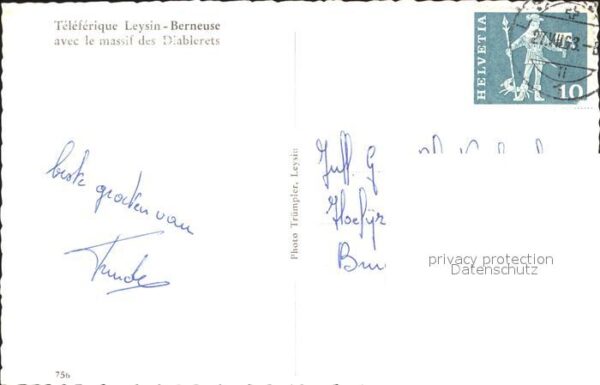 Téléférique Leysin - Berneuse
avec le massif des Diablerets
HELVETIA
10
27.VII.63.
beste groeten van
Juff. G.
Photo Trümpler, Leysin
privacy protection
Datenschutz
756